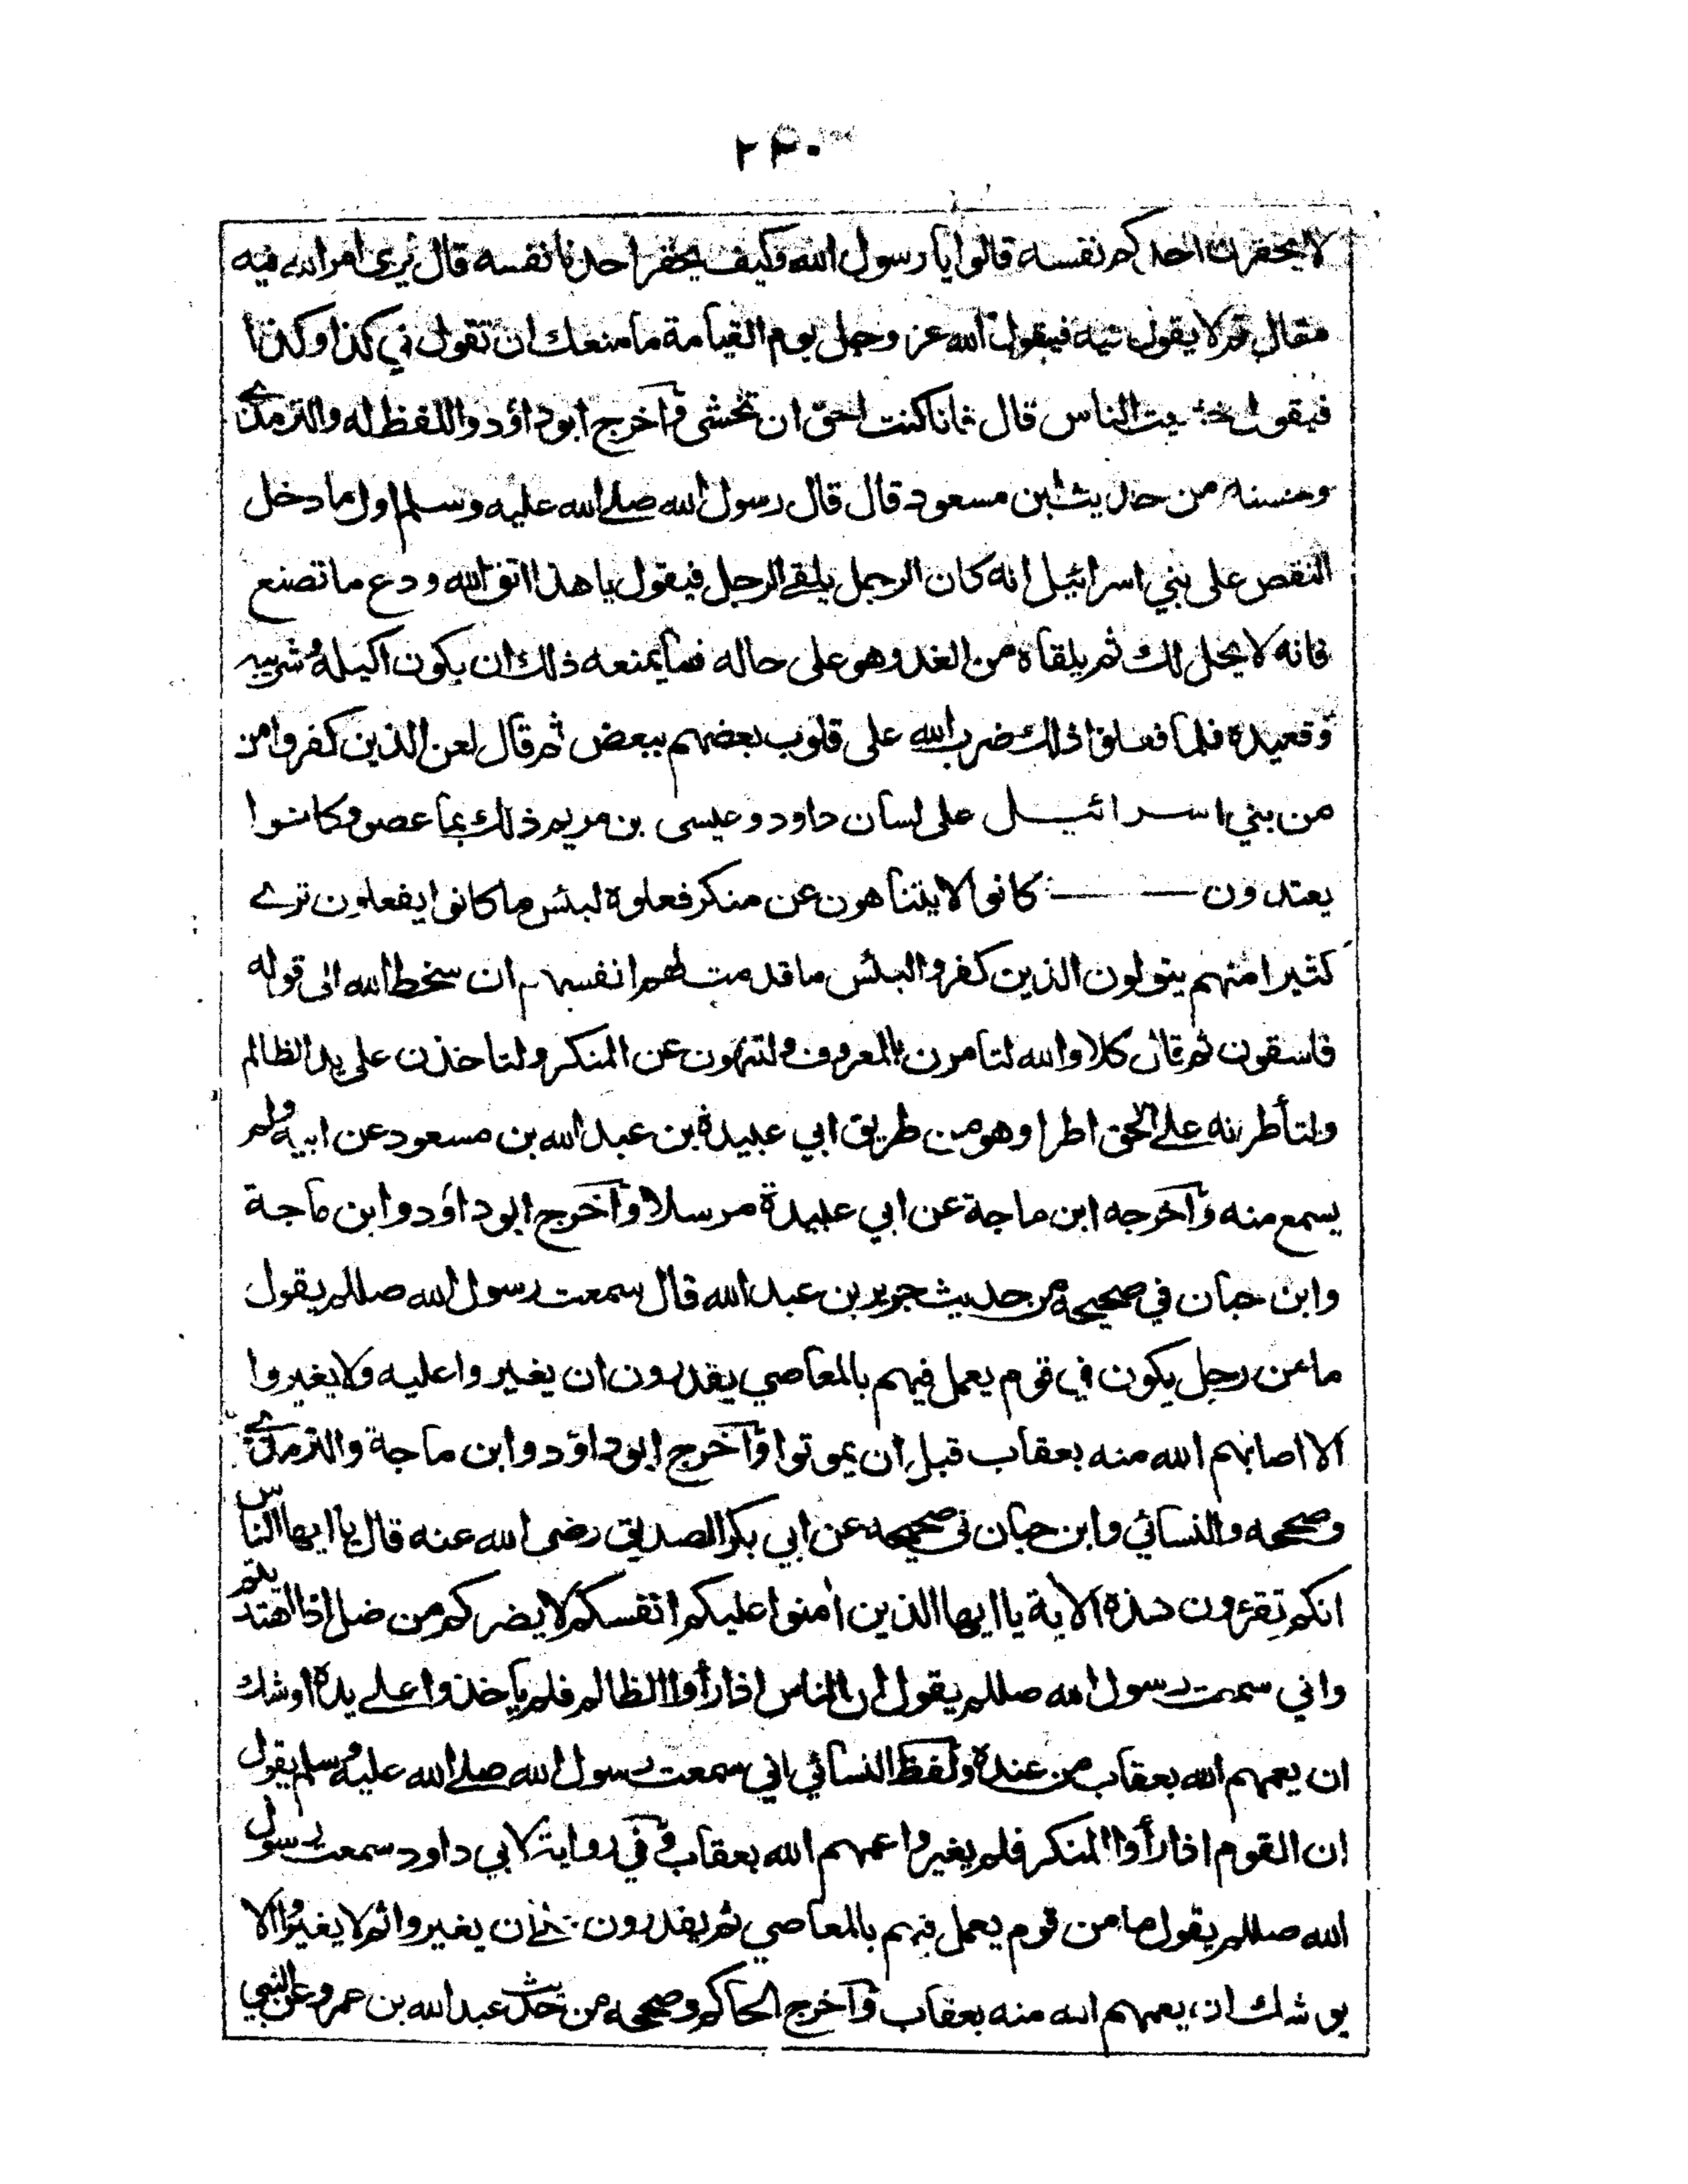 ٢٢٠
لا يحقرن احدكم نفسه قالوا يا رسول الله وكيف يحقر احدنا نفسه قال يرى امر الله فيه
مقال ثم لا يقول فيه فيقول الله عز وجل يوم القيامة ما منعك ان تقول في كذا وكذا
فيقول خشيت الناس قال فانا كنت احق ان تخشى وآخرج ابو داؤد واللفظ له والترمذي
وحسنه من حديث ابن مسعود قال قال رسول الله صلے الله عليه وسلم اول ما دخل
النقص على بني اسرائيل انه كان الرجل يلقے الرجل فيقول يا هذا اتق الله ودع ما تصنع
فانه لا يحل لك ثم يلقاه من الغد وهو على حاله فما يمنعه ذلك ان يكون اكيله وشريبه
وقعيده فلما فعلوا ذلك ضرب الله على قلوب بعضهم ببعض ثم قال لعن الذين كفروا من
من بني اسرائيل على لسان داود وعيسى بن مريم ذلك بما عصو وكانوا
يعتدون كانوا لا يتناهون عن منكر فعلوه لبئس ما كانوا يفعلون ترے
كثيرا منهم يتولون الذين كفروا لبئس ما قدمت لهم انفسهم ان سخط الله الى قوله
فاسقون ثم قال كلا والله لتامرن بالمعروف ولتنهون عن المنكر ولتاخذن على يد الظالم
ولتأطرنه علے الحق اطرا وهو من طريق ابي عبيدة بن عبد الله بن مسعود عن ابيه ولم
يسمع منه وآخرجه ابن ماجة عن ابي عبيدة مرسلا وآخرج ابو داؤد وابن ماجة
وابن حبان في صحيحه من حديث جرير بن عبد الله قال سمعت رسول الله صللم يقول
ما من رجل يكون في قوم يعمل فيهم بالمعاصي يقدرون ان يغيروا عليه ولا يغيروا
الا اصابهم الله منه بعقاب قبل ان يموتوا وآخرج ابو داؤد وابن ماجة والترمذي
وصححه والنسائي وابن حبان في صحيحه عن ابي بكر الصديق رضى الله عنه قال يا ايها الناس
انكم تقرءون هذه الاية يا ايها الذين امنوا عليكم انفسكم لا يضركم من ضل اذا اهتديتم
واني سمعت رسول الله صللم يقول ان الناس اذا رأوا الظالم فلم ياخذوا علے يده اوشك
ان يعمهم الله بعقاب من عنده ولفظ النسائي اني سمعت رسول الله صلے الله عليه وسلم يقول
ان القوم اذا رأوا المنكر فلم يغيروا عمهم الله بعقاب وفي رواية لابي داود سمعت رسول
الله صللم يقول ما من قوم يعمل فيهم بالمعاصي ثم يقدرون ان يغيروا ثم لا يغيروا الا
يوشك ان يعمهم الله منه بعقاب وآخرج الحاكم وصححه من حديث عبد الله بن عمرو عن النبي